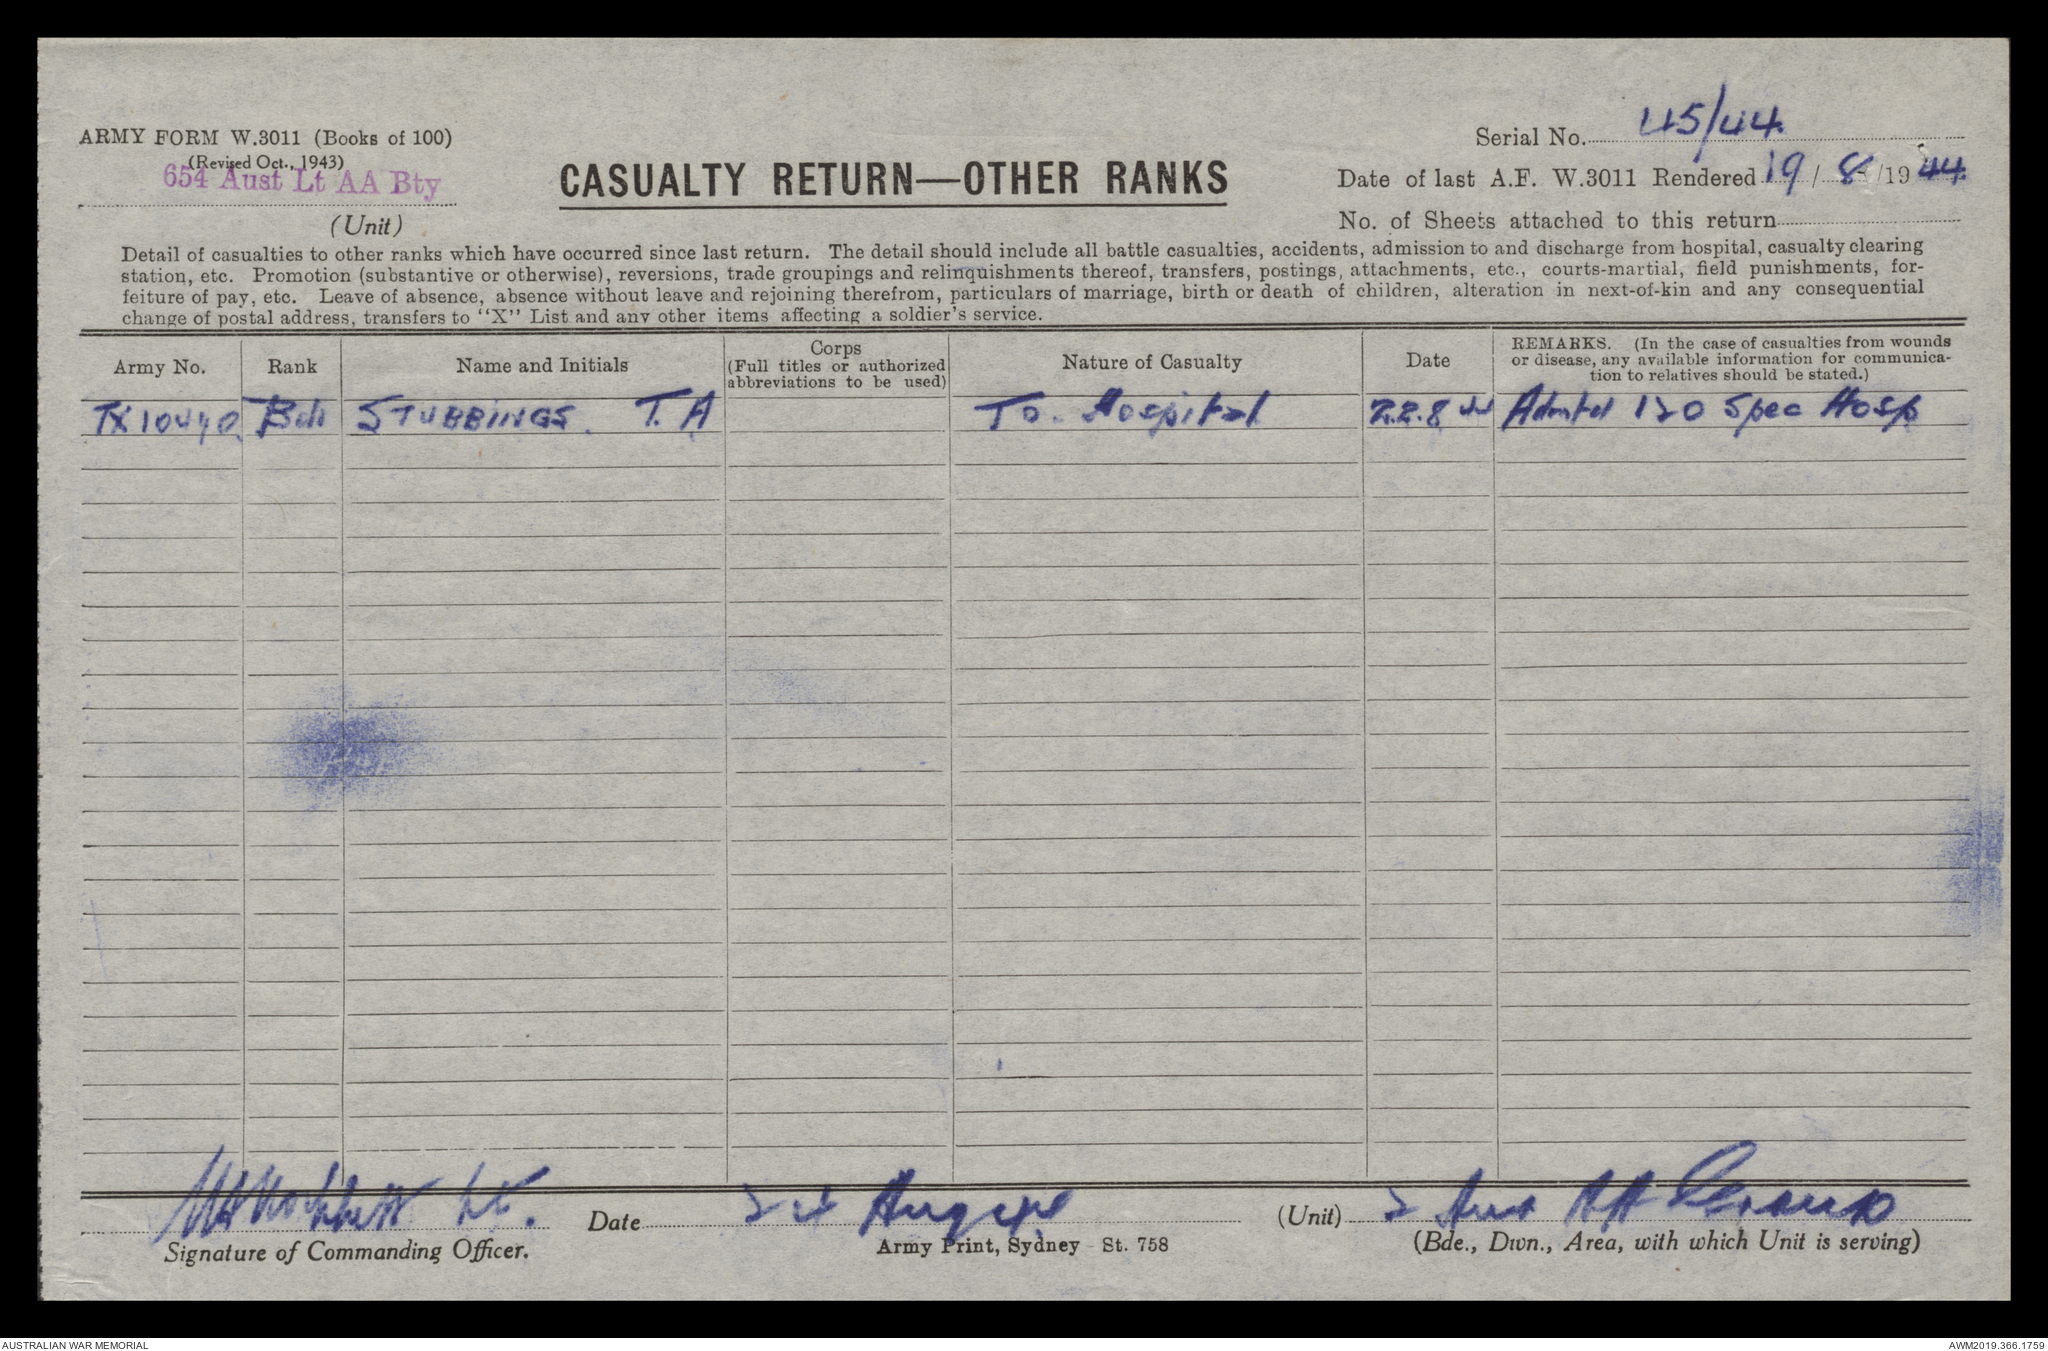 ARMY FORM W.3011 (Books of 100)
(Revised Oct., 1943)
654 Aust Lt AA Bty
(Unit)
CASUALTY RETURN—OTHER RANKS
Serial No. 45/44
Date of last A.F. W.3011 Rendered 19/8/1944
No. of Sheets attached to this return
Detail of casualties to other ranks which have occurred since last return. The detail should include all battle casualties, accidents, admission to and discharge from hospital, casualty clearing
station, etc. Promotion (substantive or otherwise), reversions, trade groupings and relinquishments thereof, transfers, postings, attachments, etc., courts-martial, field punishments, for-
feiture of pay, etc. Leave of absence, absence without leave and rejoining therefrom, particulars of marriage, birth or death of children, alteration in next-of-kin and any consequential
change of postal address, transfers to "X" List and any other items affecting a soldier's service.
Army No. Rank Name and Initials Corps (Full titles or authorized abbreviations to be used) Nature of Casualty Date REMARKS. (In the case of casualties from wounds or disease, any available information for communica-tion to relatives should be stated.)
STUBBINGS. T. A To Hospital 22.8.44 120 Spec Hosp
Lt.
Signature of Commanding Officer.
Date August
Army Print, Sydney - St. 758
(Unit) 2 Aust AA Group
(Bde., Divn., Area, with which Unit is serving)
AUSTRALIAN WAR MEMORIAL
AWM2019.366.1759